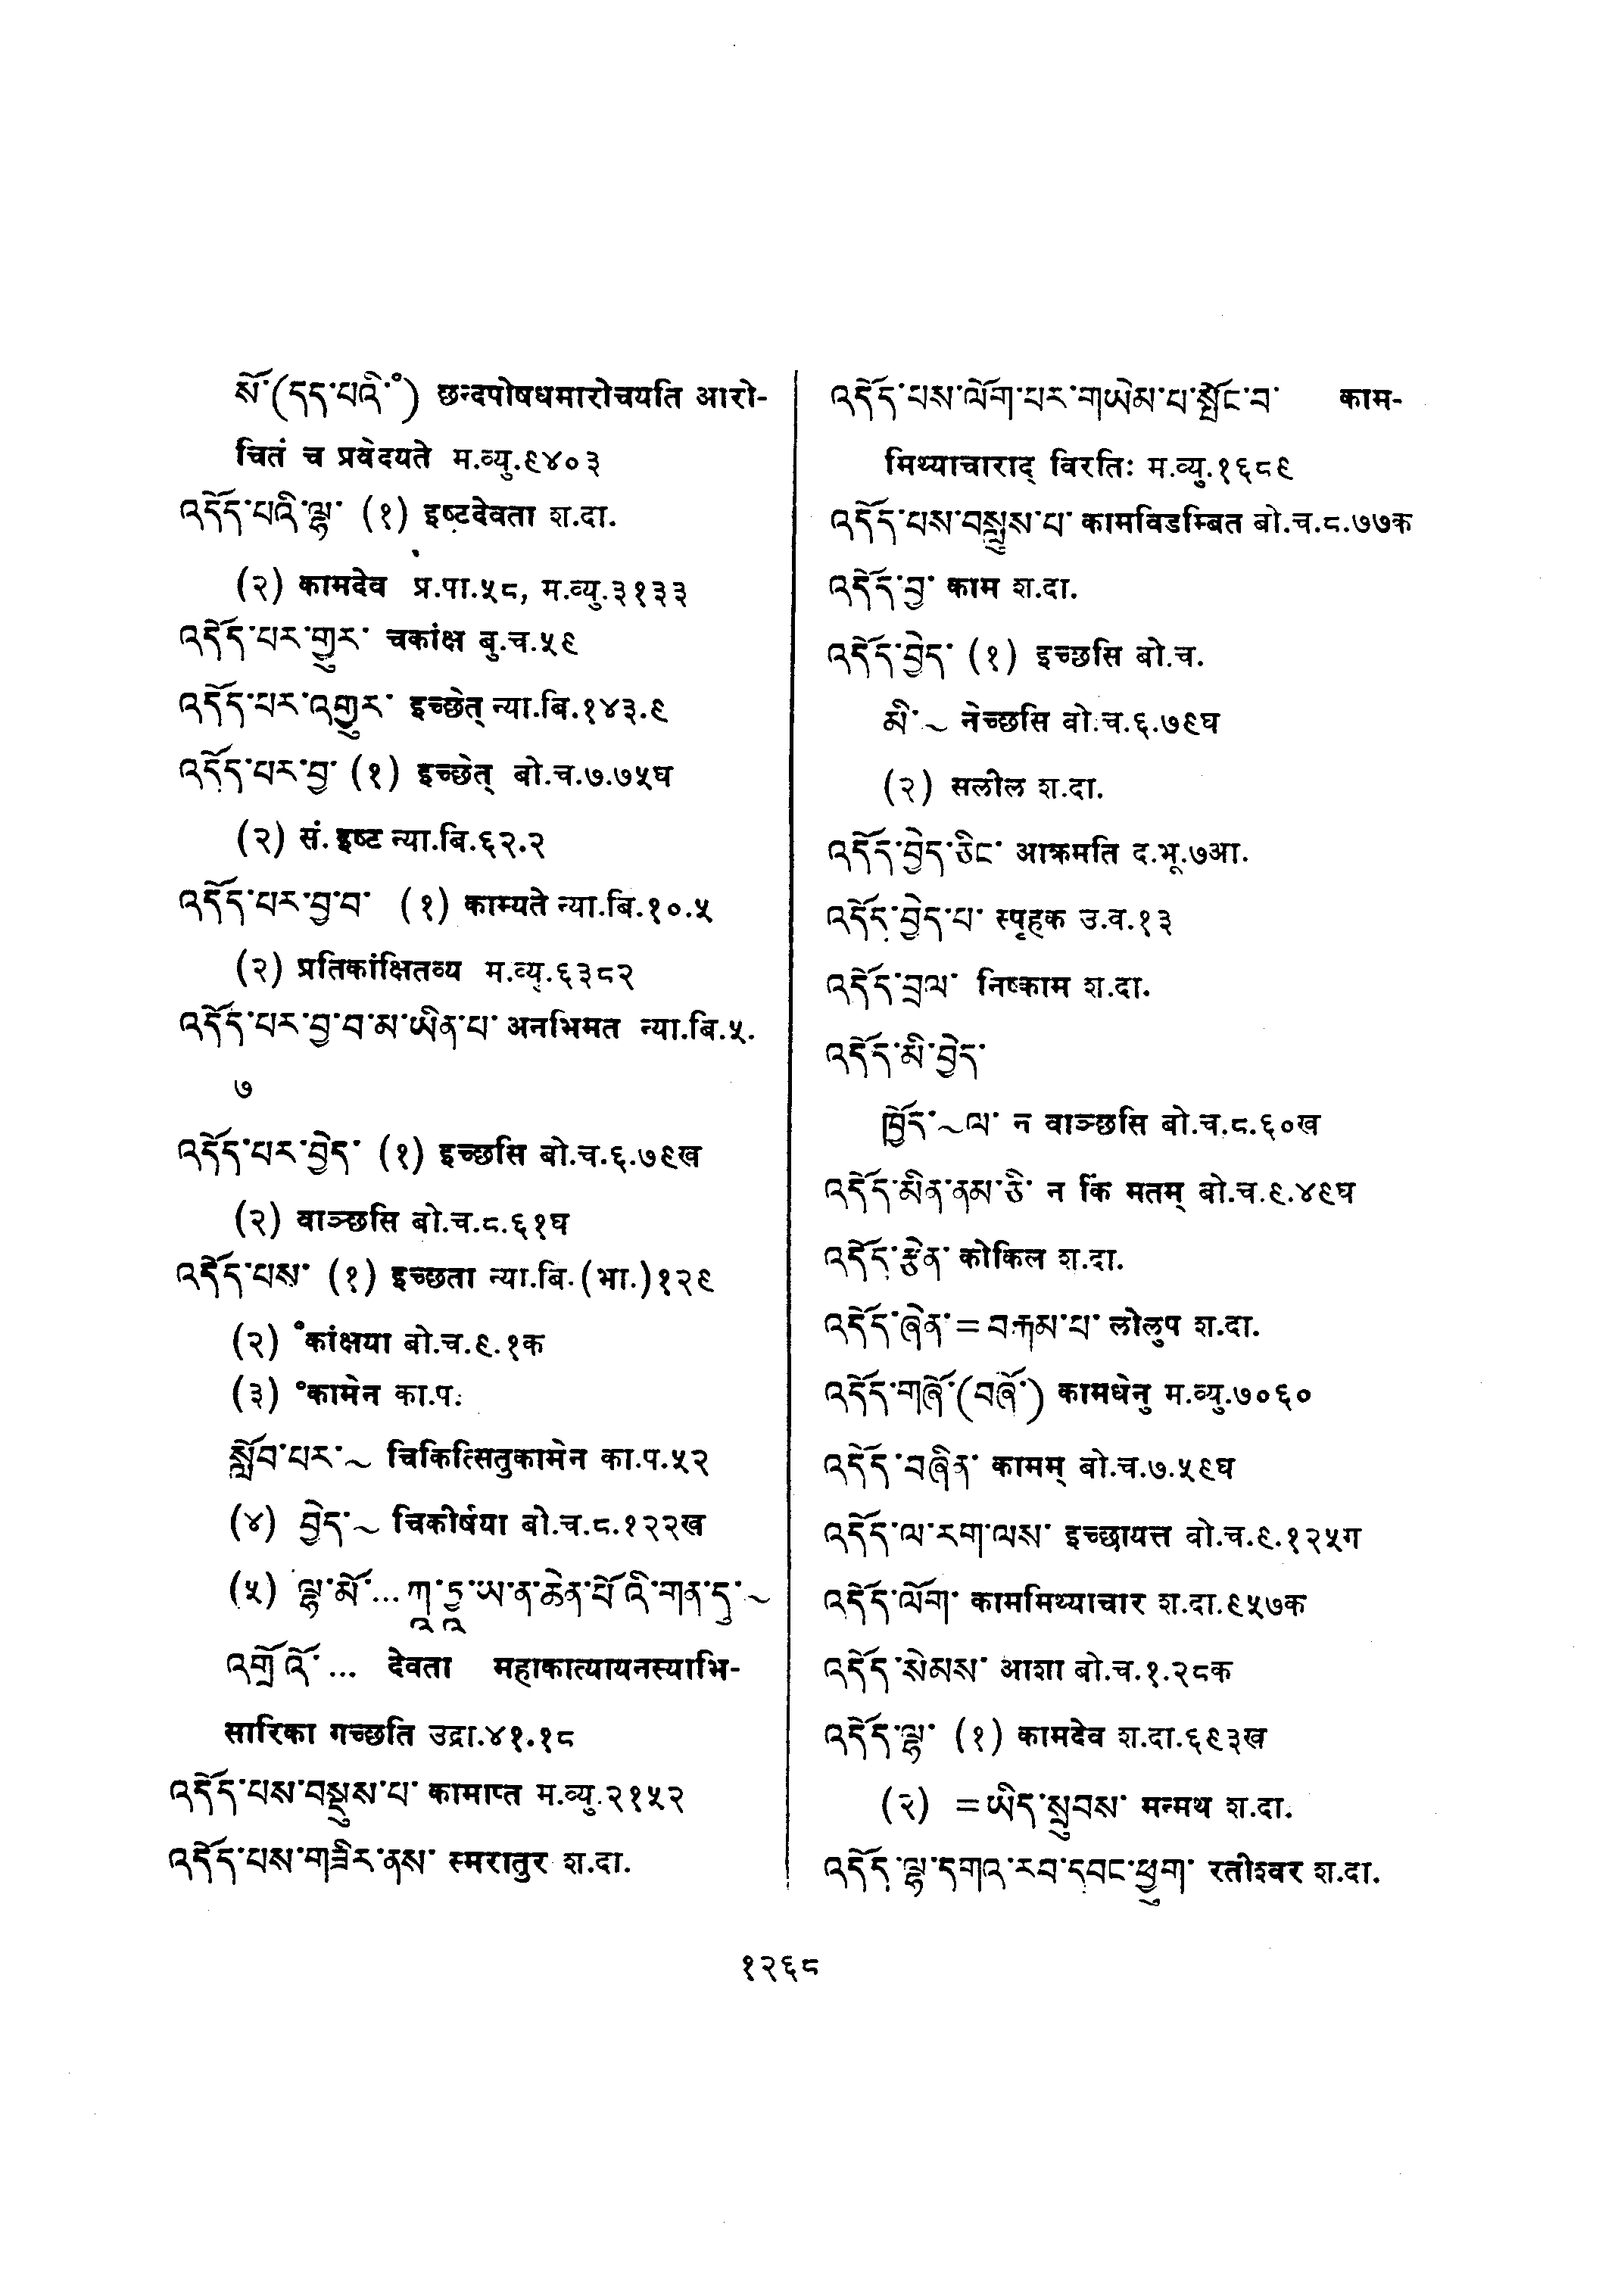 སོ་(དད་པའི་ ༠) छन्दपोषधमारोचयति आरो-
चितं च प्रवेदयते म.व्यु.९४०३
འདོད་པའི་ལྷ་ (१) इष्टदेवता श.दा.
(२) कामदेव प्र.पा.५८, म.व्यु.३१३३
འདོད་པར་གྱུར་ चकांक्ष बु.च.५९
འདོད་པར་འགྱུར་ इच्छेत् न्या.बि.१४३.९
འདོད་པར་བྱ་ (१) इच्छेत् बो.च.७.७५घ
(२) सं. इष्ट न्या.बि.६२.२
འདོད་པར་བྱ་བ་ (१) काम्यते न्या.बि.१०.५
(२) प्रतिकांक्षितव्य म.व्यु.६३८२
འདོད་པར་བྱ་བ་མ་ཡིན་པ་ अनभिमत न्या.बि.५.
७
འདོད་པར་བྱེད་ (१) इच्छसि बो.च.६.७९ख
(२) वाञ्छसि बो.च.८.६१घ
འདོད་པས་ (१) इच्छता न्या.बि.(भा.)१२९
(२) ॰कांक्षया बो.च.९.१क
(३) ॰कामेन का.प.
སློབ་པར་~ चिकित्सितुकामेन का.प.५२
(४) བྱེད་~ चिकीर्षया बो.च.८.१२२ख
(५) ལྷ་མོ་... ཀཱ་ཏྱཱ་ཡ་ན་ཆེན་པོའི་གན་དུ་~
འགྲོའོ་... देवता महाकात्यायनस्याभि-
सारिका गच्छति उद्रा.४१.१८
འདོད་པས་བསྡུས་པ་ कामाप्त म.व्यु.२१५२
འདོད་པས་གཟིར་ནས་ स्मरातुर श.दा.
འདོད་པས་ལོག་པར་གཡེམ་པ་སྤོང་བ་ काम-
मिथ्याचाराद् विरतिः म.व्यु.१६८९
འདོད་པས་བསླུས་པ་ कामविडम्बित बो.च.८.७७क
འདོད་བྱ་ काम श.दा.
འདོད་བྱེད་ (१) इच्छसि बो.च.
མི་~ नेच्छसि बो.च.६.७९घ
(२) सलील श.दा.
འདོད་བྱེད་ཅིང་ आक्रमति द.भू.७आ.
འདོད་བྱེད་པ་ स्पृहक उ.व.१३
འདོད་བྲལ་ निष्काम श.दा.
འདོད་མི་བྱེད་
ཁྱོད་~ལ་ न वाञ्छसि बो.च.८.६०ख
འདོད་མིན་ནམ་ཅི་ न किं मतम् बो.च.९.४९घ
འདོད་རྩེན་ कोकिल श.दा.
འདོད་ཞེན་=བརྐམ་པ་ लोलुप श.दा.
འདོད་གཞོ་(བཞོ་) कामधेनु म.व्यु.७०६०
འདོད་བཞིན་ कामम् बो.च.७.५९घ
འདོད་ལ་རག་ལས་ इच्छायत्त बो.च.९.१२५ग
འདོད་ལོག་ काममिथ्याचार श.दा.९५७क
འདོད་སེམས་ आशा बो.च.१.२८क
འདོད་ལྷ་ (१) कामदेव श.दा.६९३ख
(२) =ཡིད་སྲུབས་ मन्मथ श.दा.
འདོད་ལྷ་དགའ་རབ་དབང་ཕྱུག་ रतीश्वर श.दा.
१२६८